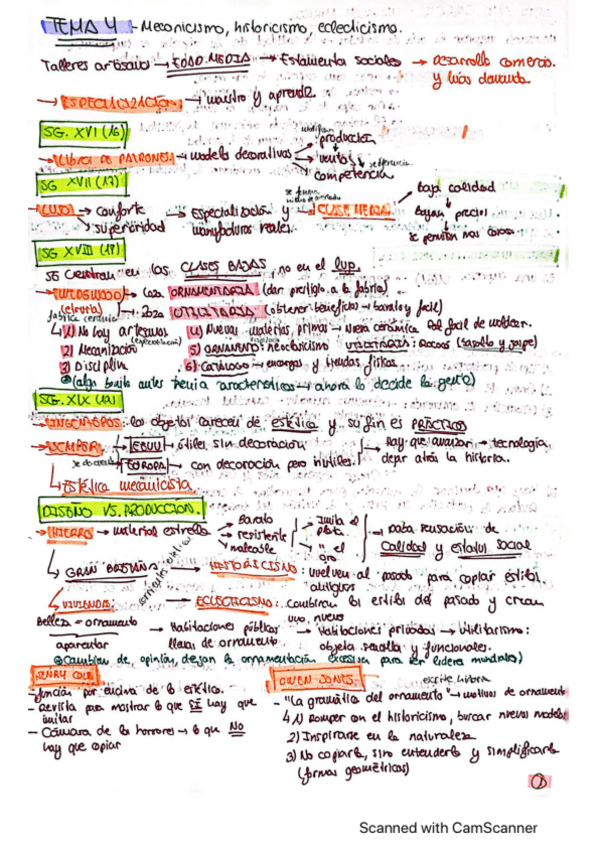 TEMA 4 - Mecanicismo, historicismo, eclecticismo.
Talleres artesanos → EDAD MEDIA → Estamentos sociales → Desarrollo comercio.
y más demanda
→ ESPECIALIZACIÓN: → maestro y aprendiz
SG. XVI (16)
→ LIBRO DE PATRONES → modelos decorativos → producción
ventas
competencia
SG XVII (17)
→ LUJO → Comforte
→ superioridad → Especialización y manufacturas reales. → CLASE MEDIA
Baja calidad
Bajan precios
se permiten más cosas
SG XVIII (18)
se centran en las CLASES BAJAS, no en el lujo.
→ WEDGWOOD → Loza ORNAMENTARIA (dar prestigio a la fábrica)
→ Loza UTILITARIA (obtener beneficios → barato y fácil)
fábrica cerámica
1) No hay artesanos
(especialización)
2) Mecanización
3) Disciplina
4) Nuevas materias primas → nueva cerámica fácil de moldear.
5) ORNAMENTO: neoclasicismo
6) CATÁLOGO → encargos y tiendas físicas
(algo bonito antes tenía características → ahora lo decide la gente)
SG. XIX (19)
→ INGENIEROS: los objetos carecen de estética y su fin es PRÁCTICO
→ SEMPER → EEUU → útiles, sin decoración
EUROPA → con decoración pero inútiles.
Hay que avanzar → tecnología,
dejar atrás la historia.
→ Estética mecanicista
DISEÑO VS. PRODUCCIÓN.
→ HIERRO → material estrella
Barato
resistente
maleable
Imita el plata
" el oro
Daba sensación de
calidad y estatus social
GRAN BRETAÑA → HISTORICISMO: vuelven al pasado para copiar estilos antiguos
→ VIVIENDA → ECLECTICISMO: combinan los estilos del pasado y crean uno nuevo
Belleza = ornamento
aparentar
→ Habitaciones públicas
llenas de ornamento
→ Habitaciones privadas → Utilitarismo:
objeto sencillo y funcionales.
(Cambian de opinión, dejan la ornamentación excesiva para ser líderes mundiales)
HENRY COLE
- función por encima de la estética.
- Revista para mostrar lo que SÍ hay que imitar
- Cámara de los horrores → lo que NO hay que copiar
OWEN JONES:
escribe libro
- "La gramática del ornamento" → motivos de ornamento
1) Romper con el historicismo, buscar nuevos modelos
2) Inspirarse en la naturaleza
3) No copiarla, sino entenderla y simplificarla
(formas geométricas)
1
Scanned with CamScanner